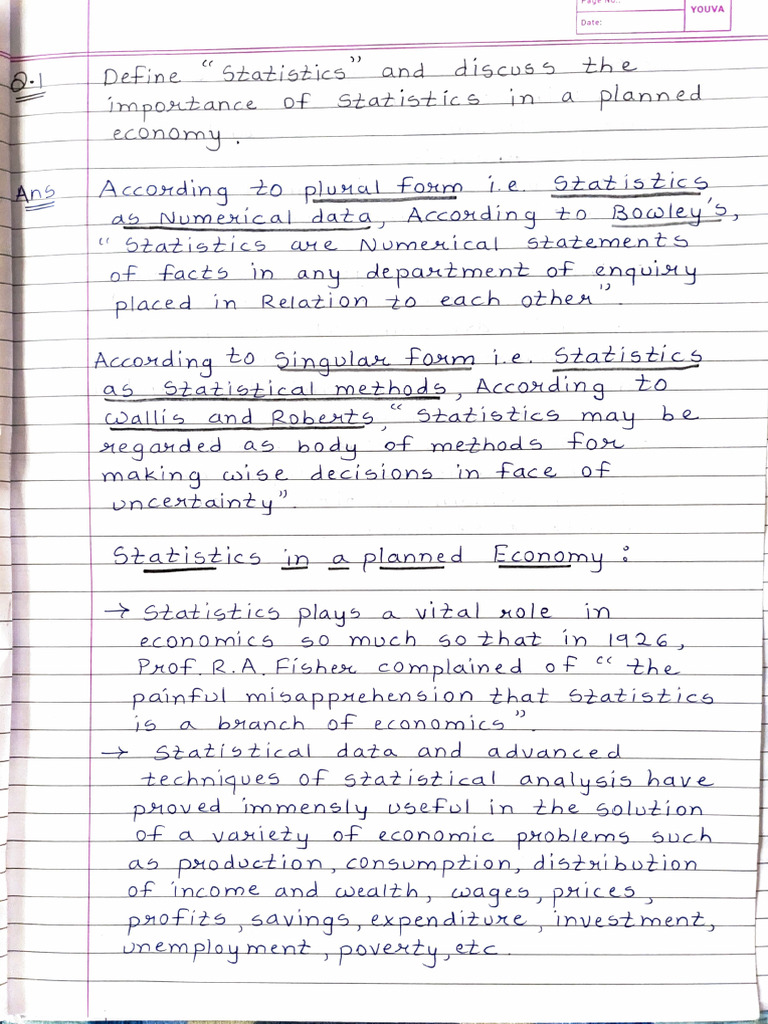 Page No.:
Date:
YOUVA
Q.1 Define "Statistics" and discuss the
importance of statistics in a planned
economy.
Ans According to plural form i.e. Statistics
as Numerical data, According to Bowley's,
"Statistics are Numerical statements
of facts in any department of enquiry
placed in Relation to each other".
According to Singular form i.e. Statistics
as statistical methods, According to
Wallis and Roberts, "Statistics may be
regarded as body of methods for
making wise decisions in face of
uncertainty".
Statistics in a planned Economy :
→ Statistics plays a vital role in
economics so much so that in 1926,
Prof. R.A. Fisher complained of "the
painful misapprehension that statistics
is a branch of economics".
→ Statistical data and advanced
techniques of statistical analysis have
proved immensly useful in the solution
of a variety of economic problems such
as production, consumption, distribution
of income and wealth, wages, prices,
profits, savings, expenditure, investment,
unemployment, poverty, etc.